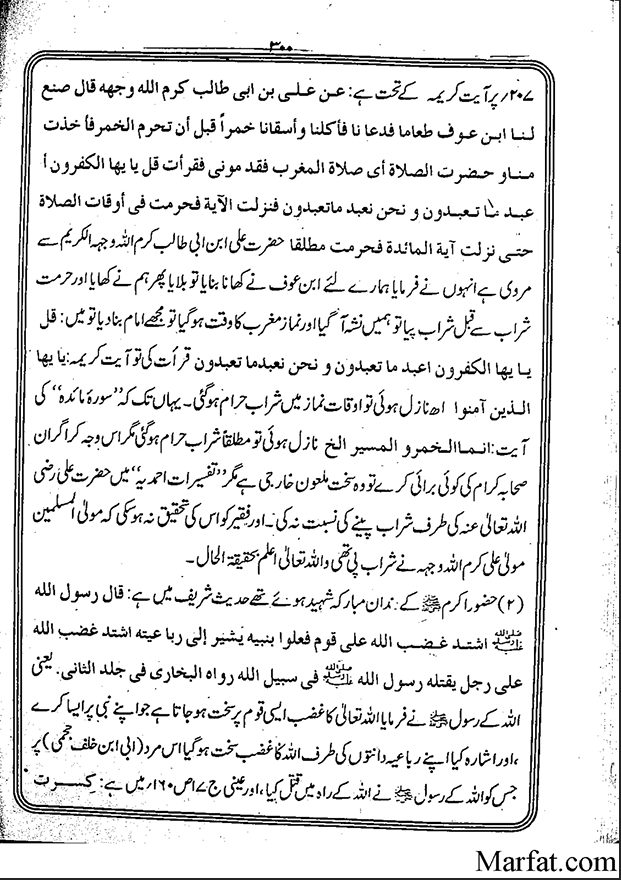 ۳۰۰
۲۰۷؍ پر آیت کریمہ کے تحت ہے: عن علی بن ابی طالب کرم الله وجهه قال صنع
لنا ابن عوف طعاما فدعا نا فأكلنا وأسقانا خمراً قبل أن تحرم الخمر فأ خذت
مناو حضرت الصلاة أى صلاة المغرب فقد مونى فقرأت قل يا يها الكفرون أ
عبد ما تعبدون و نحن نعبد ماتعبدون فنزلت الآية فحرمت فى أوقات الصلاة
حتى نزلت آية المائدة فحرمت مطلقا حضرت علی ابن ابی طالب کرم اللہ وجہہ الکریم سے
مروی ہے انہوں نے فرمایا ہمارے لئے ابن عوف نے کھانا بنایا تو بلایا پھر ہم نے کھایا اور حرمت
شراب سے قبل شراب پیا تو ہمیں نشہ آ گیا اور نماز مغرب کا وقت ہو گیا تو مجھے امام بنا دیا تو میں: قل
یا یها الکفرون اعبد ما تعبدون و نحن نعبدما تعبدون قرأت کی تو آیت کریمہ: یا یها
الذین آمنوا اھ نازل ہوئی تو اوقات نماز میں شراب حرام ہو گئی۔ یہاں تک کہ ’’سورۂ مائدہ‘‘ کی
آیت: انما الخمر و المسیر الخ نازل ہوئی تو مطلقا شراب حرام ہو گئی مگر اس وجہ کر اگر ان
صحابہ کرام کی کوئی برائی کرے تو وہ سخت ملعون خارجی ہے مگر ’’تفسیرات احمدیہ‘‘ میں حضرت علی رضی
اللہ تعالیٰ عنہ کی طرف شراب پینے کی نسبت نہ کی۔ اور فقیر کو اس کی تحقیق نہ ہو سکی کہ مولیٰ المسلمین
مولیٰ علی کرم اللہ وجہہ نے شراب پی تھی واللہ تعالیٰ اعلم بحقیقۃ الحال۔
(۲) حضور اکرم ﷺ کے دندان مبارکہ شہید ہوئے تھے حدیث شریف میں ہے: قال رسول الله
ﷺ اشتد غضب الله على قوم فعلوا بنبيه يشير إلى رباعيته اشتد غضب الله
على رجل يقتله رسول الله ﷺ فى سبيل الله رواه البخارى فى جلد الثانى. یعنی
اللہ کے رسول ﷺ نے فرمایا اللہ تعالیٰ کا غضب ایسی قوم پر سخت ہو جاتا ہے جو اپنے نبی پر ایسا کرے
،اور اشارہ کیا اپنے رباعیہ دانتوں کی طرف اللہ کا غضب سخت ہو گیا اس مرد (ابی ابن خلف جمحی) پر
جس کو اللہ کے رسول ﷺ نے اللہ کے راہ میں قتل کیا، اور عینی ج ۱۷ ص ۱۶۰؍ میں ہے: کسرت
Marfat.com